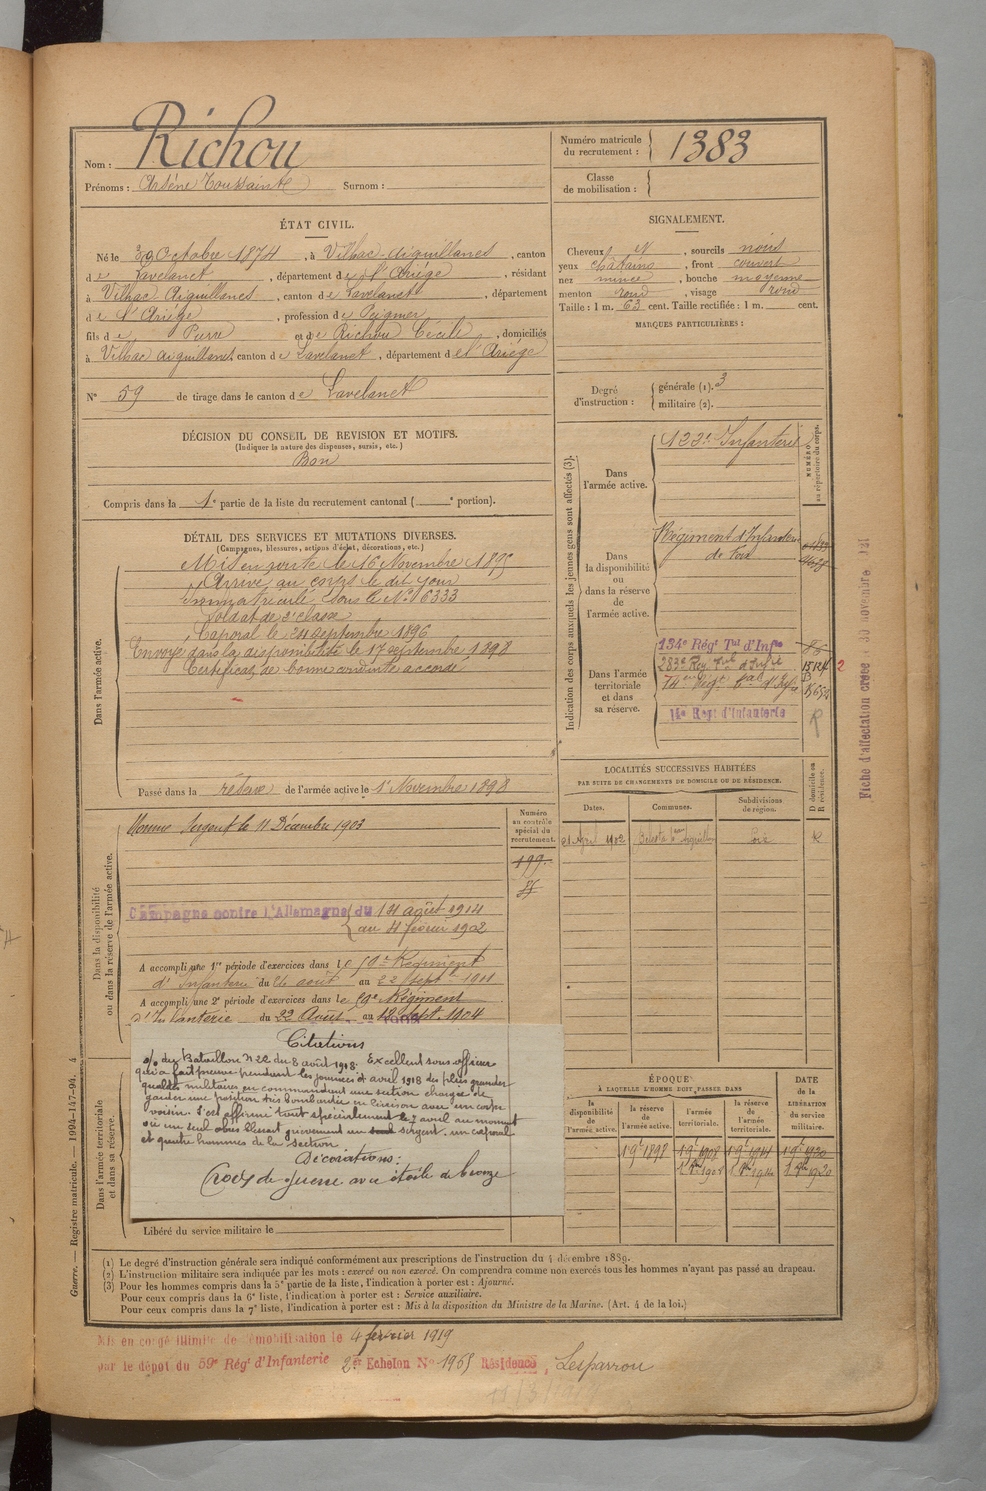 Nom : Richou
Prénoms : Arsène Toussaint Surnom :
Numéro matricule du recrutement : 1383
Classe de mobilisation :
ÉTAT CIVIL.
Né le 30 Octobre 1874, à Vilhac-Aiguillanes, canton
de Lavelanet, département de l'Ariège, résidant
à Vilhac-Aiguillanes, canton de Lavelanet, département
de l'Ariège, profession de Peigneur
fils de Pierre et de Richou Cécile, domiciliés
à Vilhac Aiguillanes canton de Lavelanet, département de l'Ariège
N° 59 de tirage dans le canton de Lavelanet
SIGNALEMENT.
Cheveux N, sourcils noirs
yeux châtains, front couvert
nez mince, bouche moyenne
menton rond, visage rond
Taille : 1 m. 63 cent. Taille rectifiée : 1 m. cent.
MARQUES PARTICULIÈRES :
Degré d'instruction : générale (1). 3
militaire (2).
DÉCISION DU CONSEIL DE REVISION ET MOTIFS.
(Indiquer la nature des dispenses, sursis, etc.)
Bon
Compris dans la 1e partie de la liste du recrutement cantonal ( e portion).
DÉTAIL DES SERVICES ET MUTATIONS DIVERSES.
(Campagnes, blessures, actions d'éclat, décorations, etc.)
Dans l'armée active.
Mis en route le 16 Novembre 1895
Arrivé au corps le dit jour
immatriculé sous le N° 6333
Soldat de 2e classe
Caporal le 24 septembre 1896
Envoyé dans la disponibilité le 17 septembre 1898
Certificat de bonne conduite accordé
Passé dans la réserve de l'armée active le 1er Novembre 1898
Indication des corps auxquels les jeunes gens sont affectés (3).
NUMÉRO au répertoire du corps.
Dans l'armée active.
122e Infanterie
Dans la disponibilité ou dans la réserve de l'armée active.
Régiment d'Infanterie
de Foix
Dans l'armée territoriale et dans sa réserve.
134e Régt Tal d'Infie
283e Reg. Tal d'Infie
14e Regt d'Infanterie
R
2
Fiche d'affectation créée le 30 novembre
LOCALITÉS SUCCESSIVES HABITÉES
PAR SUITE DE CHANGEMENTS DE DOMICILE OU DE RÉSIDENCE.
D domicile ou R résidence.
Dates. Communes. Subdivisions de région.
21 Avril 1902 Foix R
Dans la disponibilité ou dans la réserve de l'armée active.
Numéro au contrôle spécial du recrutement.
Nommé Sergent le 11 Décembre 1903
199
Campagne contre l'Allemagne du 14 août 1914
au 4 février 1902
A accompli une 1re période d'exercices dans le 59e Régiment
d'Infanterie du 26 août au 22 Sept. 1901
A accompli une 2e période d'exercices dans le 59e Régiment
d'Infanterie du 22 Août au 12 Sept. 1904
Dans l'armée territoriale et dans sa réserve.
Citations
o/o du Bataillon N° 22 du 8 août 1918. Excellent sous-officier
qui a fait preuve pendant les journées d'avril 1918 des plus grandes
qualités militaires en commandant une section chargée de
garder une position très bombardée en liaison avec un corps
voisin. S'est affirmé tout spécialement le 7 avril au moment
où un seul obus blessait grièvement un sergent, un caporal
et quatre hommes de la section
Décorations :
Croix de guerre avec étoile de bronze
Libéré du service militaire le
ÉPOQUE
À LAQUELLE L'HOMME DOIT PASSER DANS
DATE de la LIBÉRATION du service militaire.
la disponibilité de l'armée active. la réserve de l'armée active. l'armée territoriale. la réserve de l'armée territoriale.
1 9bre 1898 1 9bre 1908 1 9bre 1914 1 9bre 1920
(1) Le degré d'instruction générale sera indiqué conformément aux prescriptions de l'instruction du 4 décembre 1889.
(2) L'instruction militaire sera indiquée par les mots : exercé ou non exercé. On comprendra comme non exercés tous les hommes n'ayant pas passé au drapeau.
(3) Pour les hommes compris dans la 5e partie de la liste, l'indication à porter est : Ajourné.
Pour ceux compris dans la 6e liste, l'indication à porter est : Service auxiliaire.
Pour ceux compris dans la 7e liste, l'indication à porter est : Mis à la disposition du Ministre de la Marine. (Art. 4 de la loi.)
Guerre. — Registre matricule. — 1994-147-94. 4
Mis en congé illimité de démobilisation le 4 février 1919
par le dépôt du 59e Régt d'Infanterie 2e Echelon N° 1965 Résidence, Lesparrou